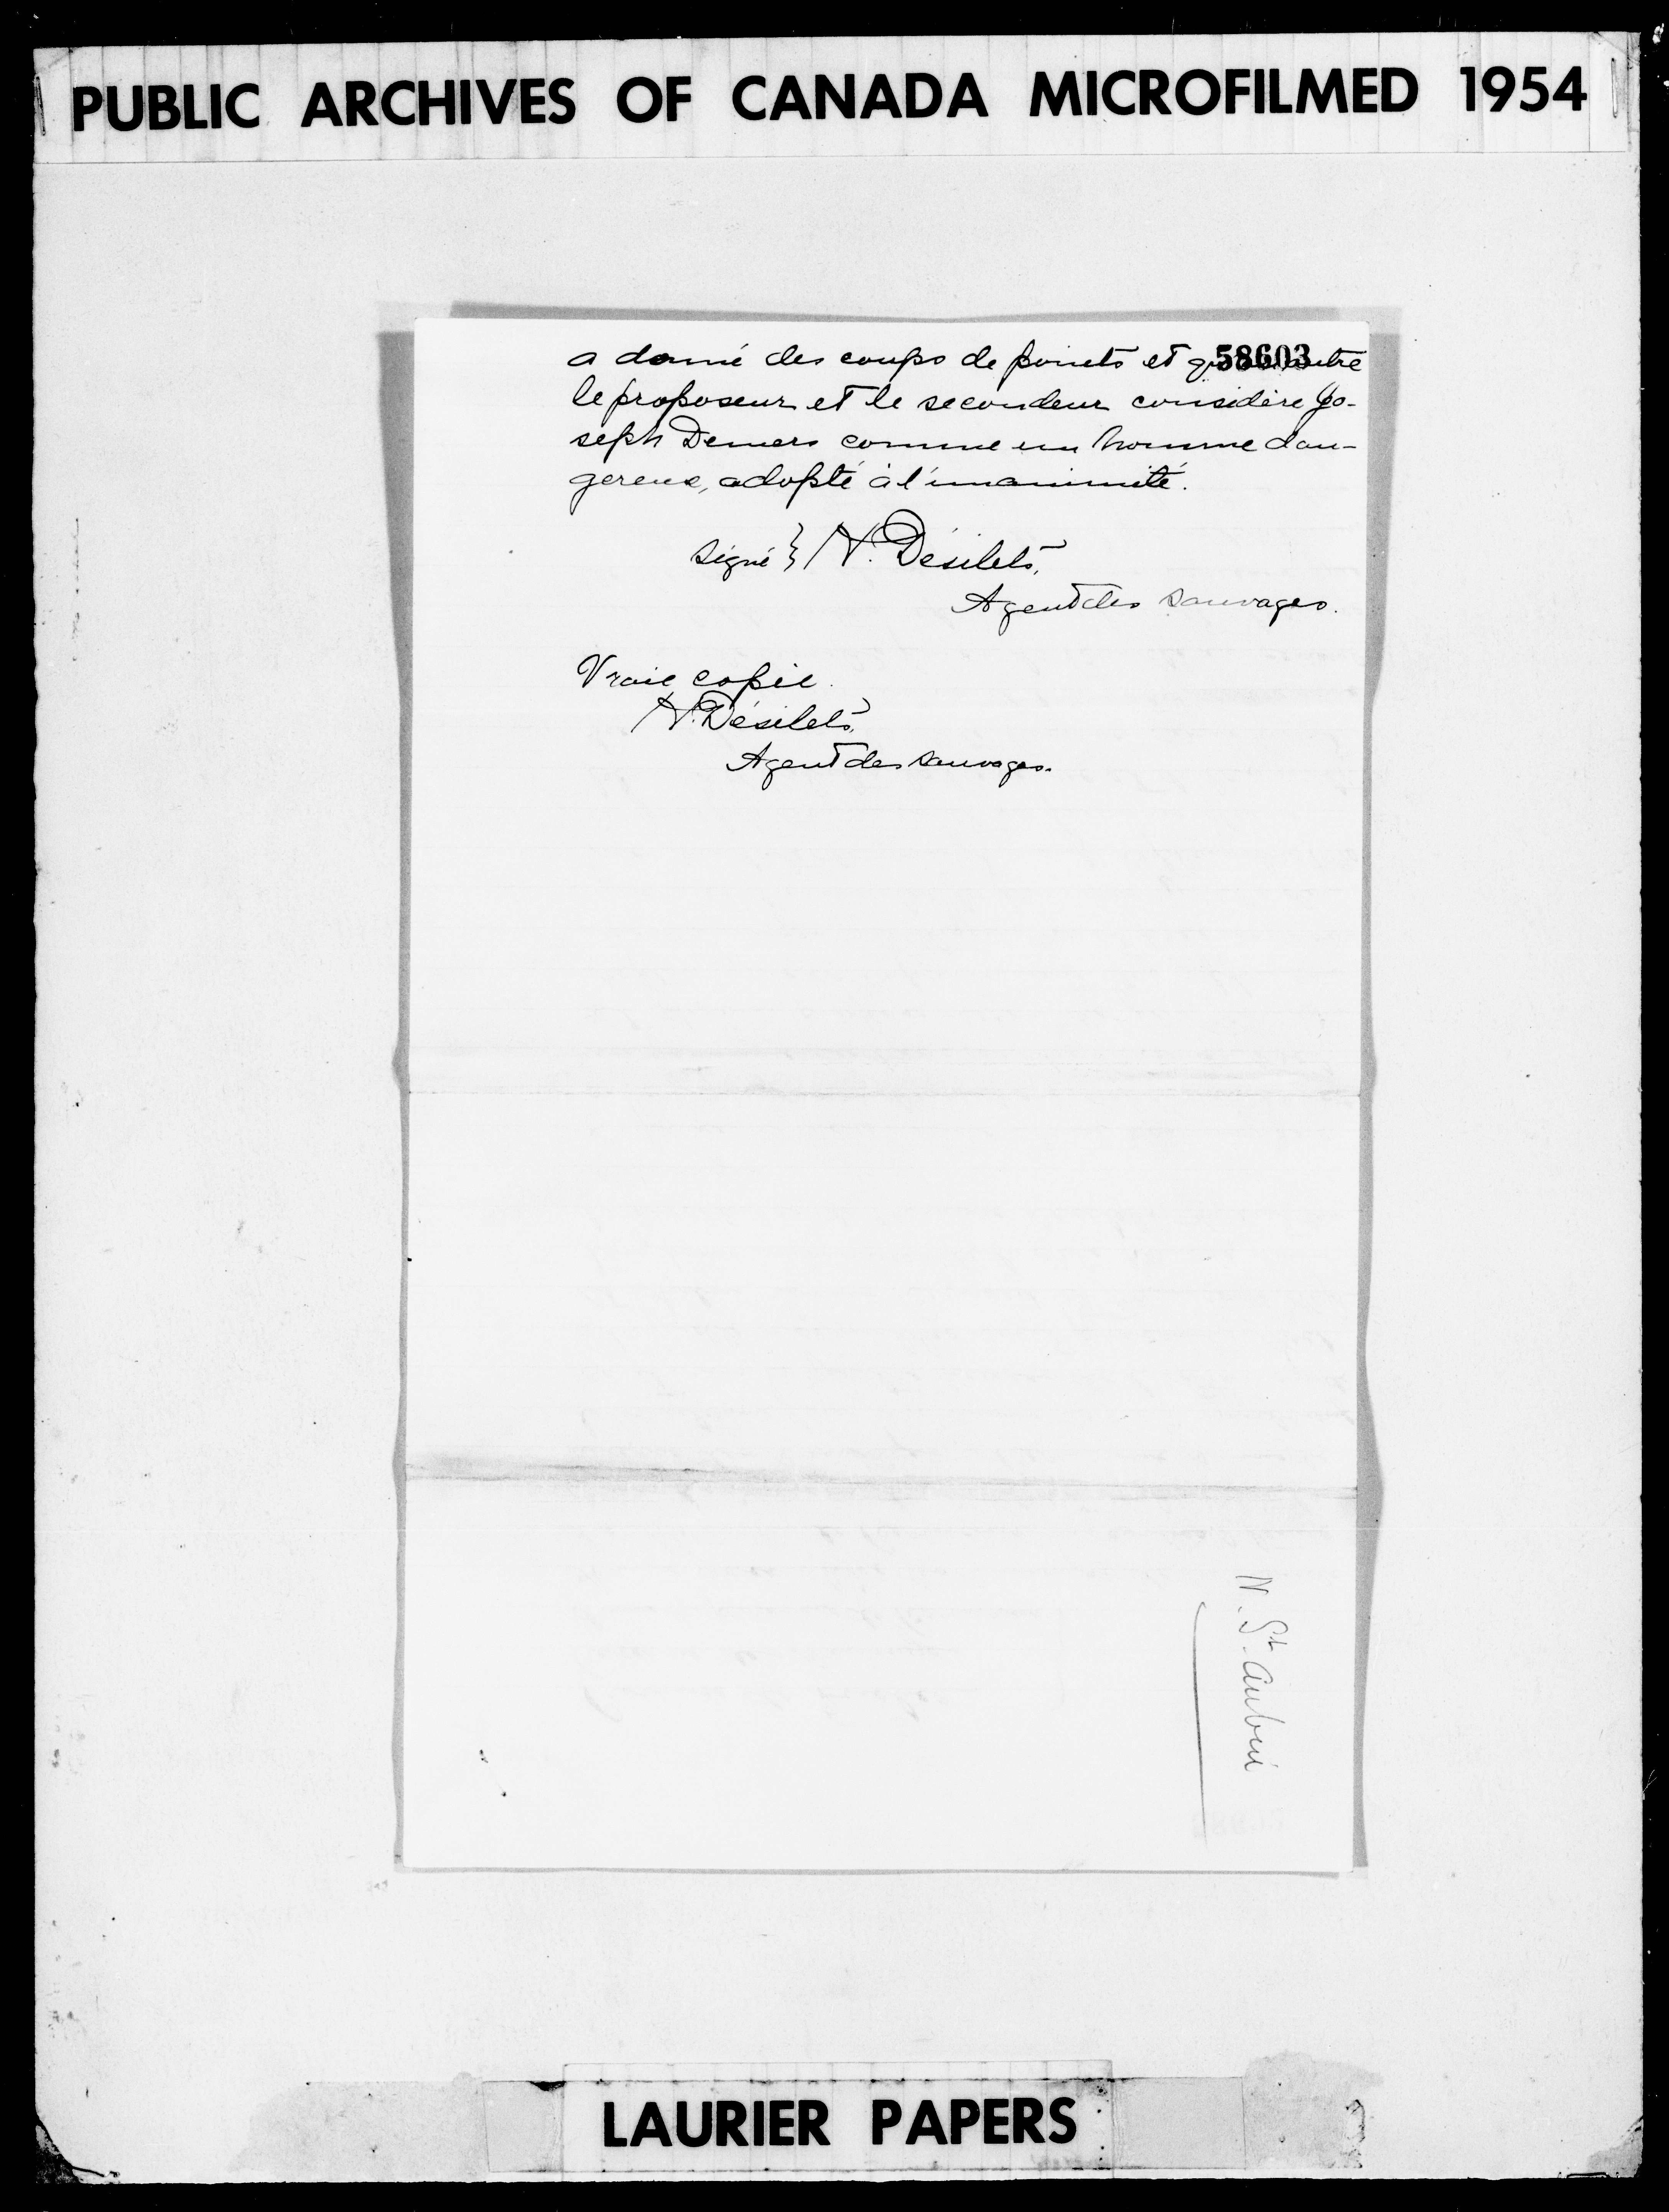 PUBLIC ARCHIVES OF CANADA MICROFILMED 1954
58603
a donné des coups de points et
le proposeur et le secondeur considère Jo-
seph Demers comme un homme dan-
gereux, adopté à l'unanimité.
signé } N. Désilets,
Agent des sauvages.
Vraie copie.
N. Désilets,
Agent des sauvages.
N. St. Aubin
LAURIER PAPERS